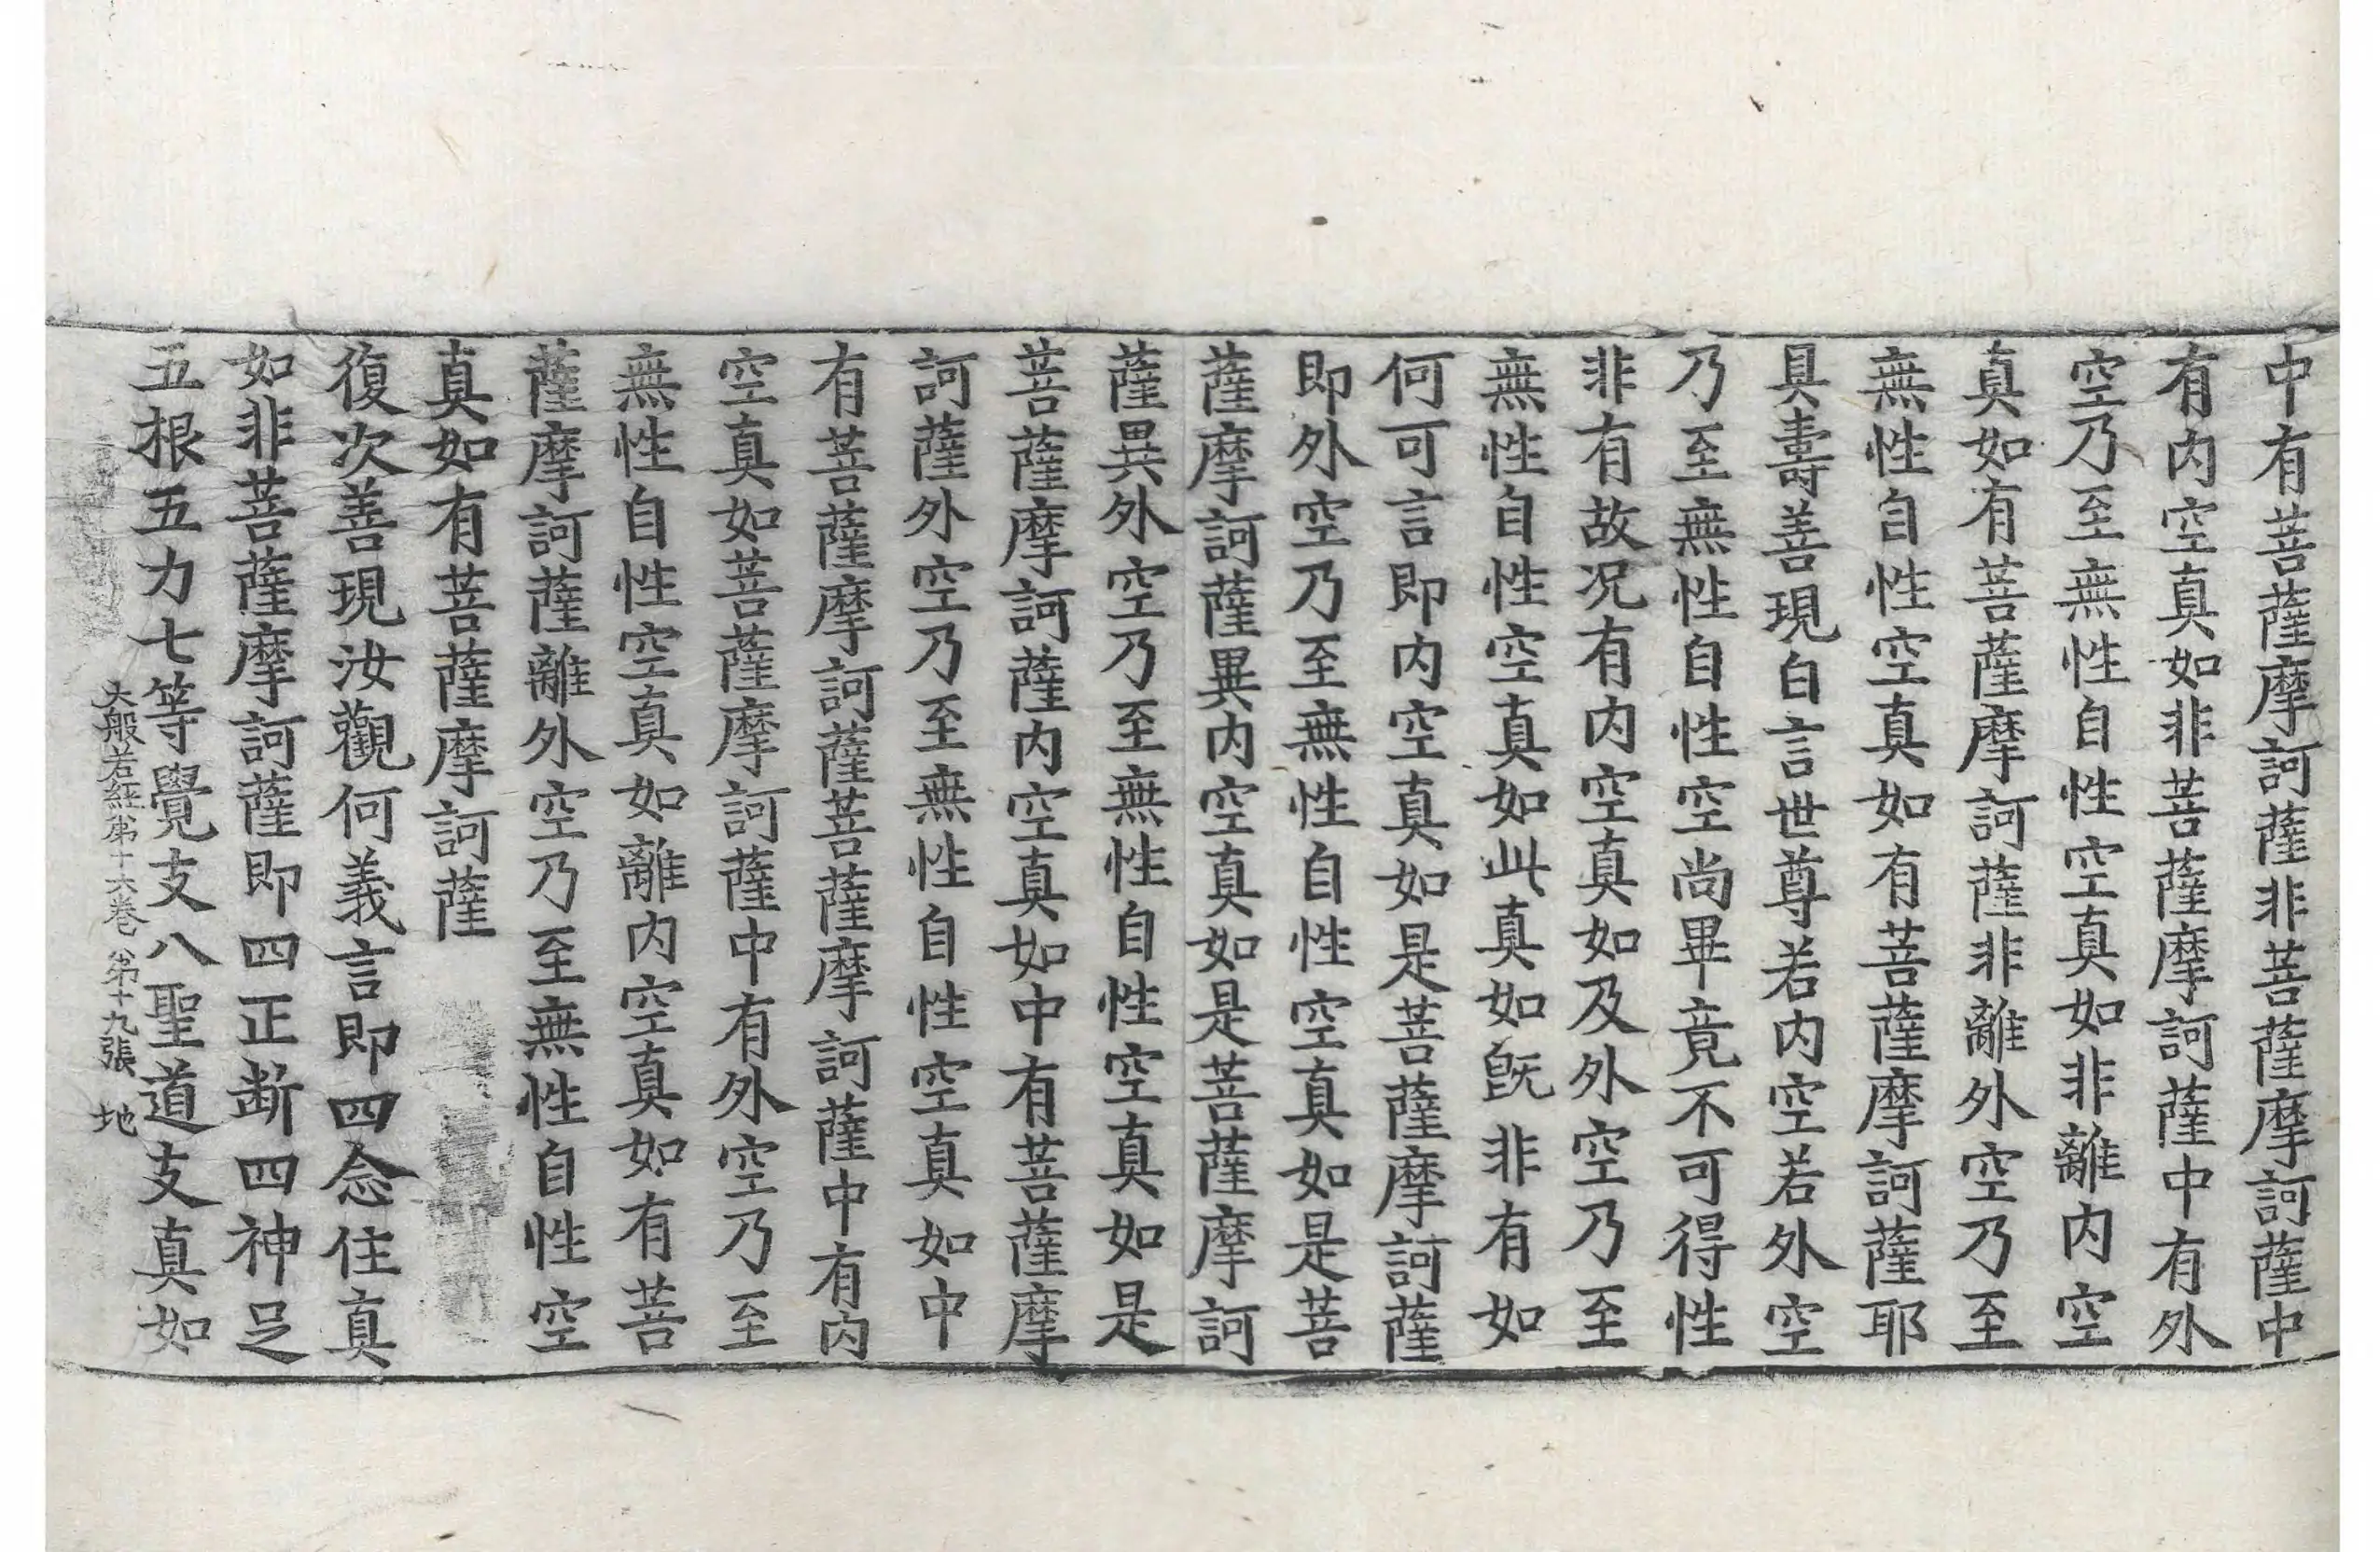 中有菩薩摩訶薩非菩薩摩訶薩中
有内空真如非菩薩摩訶薩中有外
空乃至無性自性空真如非離内空
真如有菩薩摩訶薩非離外空乃至
無性自性空真如有菩薩摩訶薩耶
具壽善現白言世尊若内空若外空
乃至無性自性空尚畢竟不可得性
非有故况有内空真如及外空乃至
無性自性空真如此真如旣非有如
何可言即内空真如是菩薩摩訶薩
即外空乃至無性自性空真如是菩
薩摩訶薩異内空真如是菩薩摩訶
薩異外空乃至無性自性空真如是
菩薩摩訶薩内空真如中有菩薩摩
訶薩外空乃至無性自性空真如中
有菩薩摩訶薩菩薩摩訶薩中有内
空真如菩薩摩訶薩中有外空乃至
無性自性空真如離内空真如有菩
薩摩訶薩離外空乃至無性自性空
真如有菩薩摩訶薩
復次善現汝觀何義言即四念住真
如非菩薩摩訶薩即四正断四神足
五根五力七等覺支八聖道支真如
大般若経第十六卷 第十九張 地